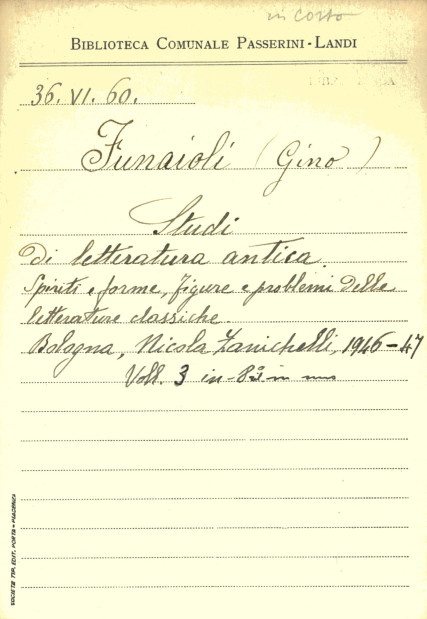 in corso
BIBLIOTECA COMUNALE PASSERINI-LANDI
36. VI. 60.
Funaioli (Gino)
Studi
di letteratura antica.
Spiriti e forme, figure e problemi delle
letterature classiche.
Bologna, Nicola Zanichelli, 1946-47
Voll. 3 in-8° in uno
SOCIETÀ TIP. EDIT. PORTA - PIACENZA